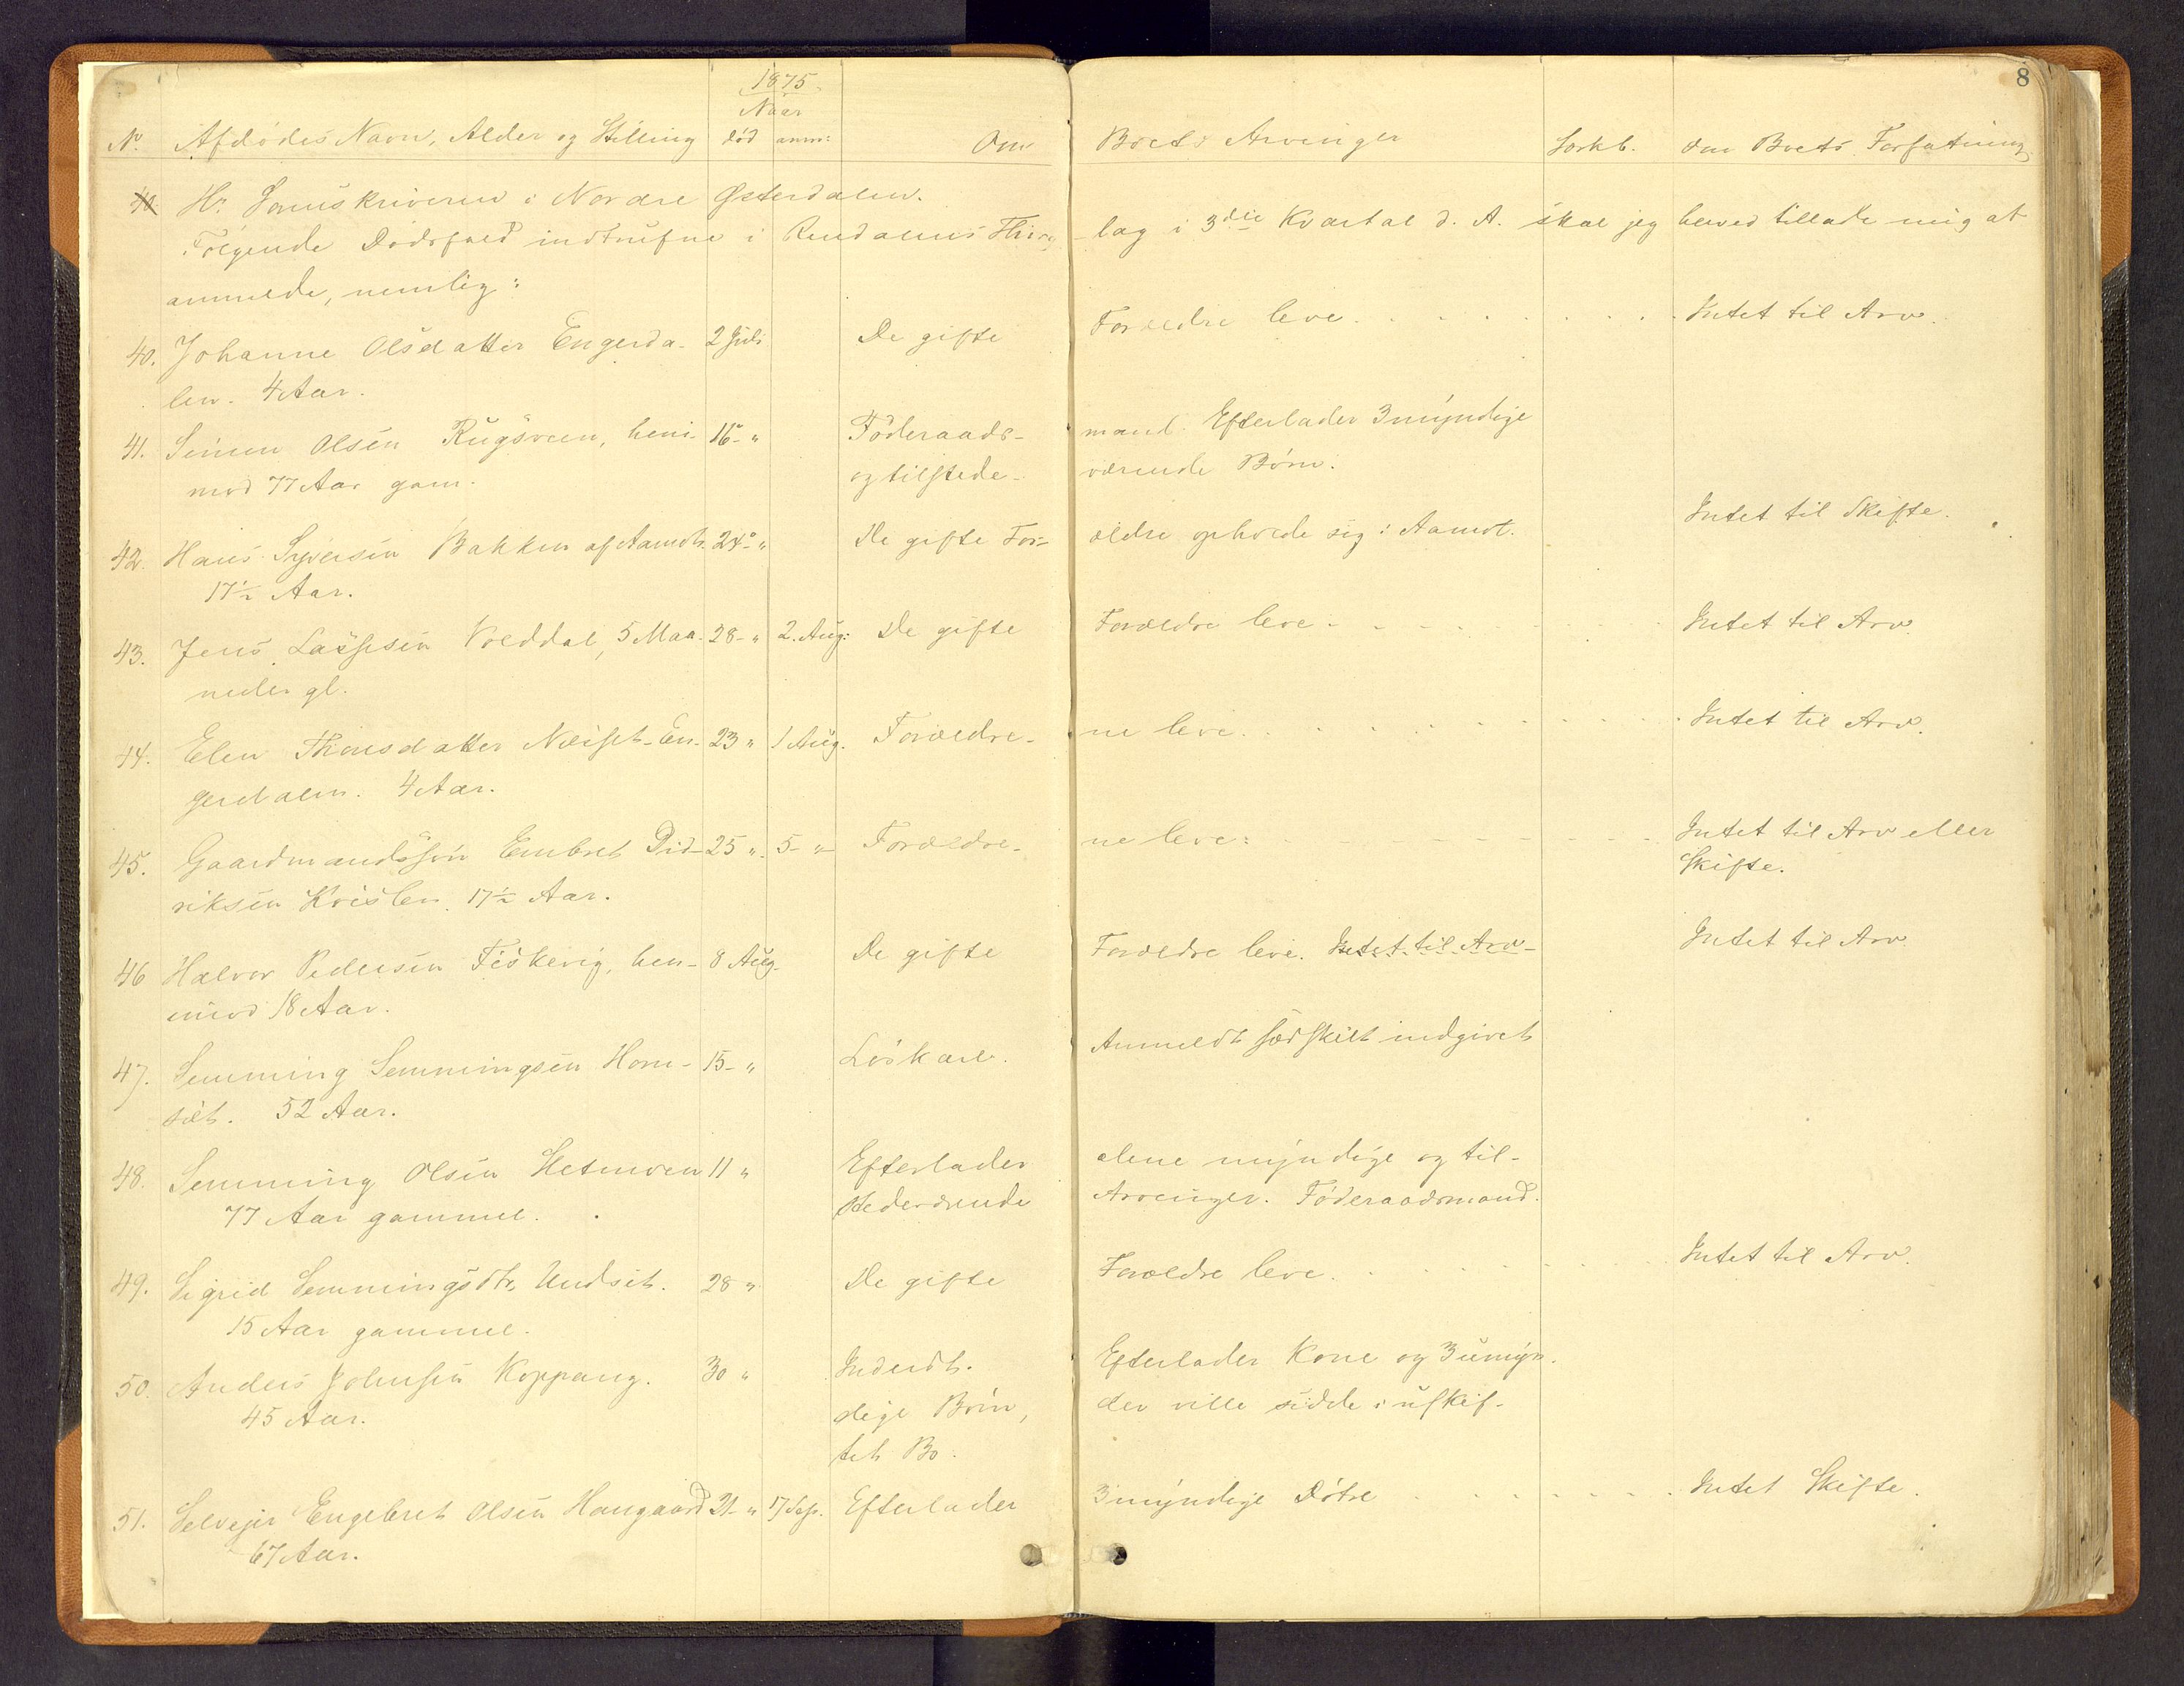 8
1875.
Naar
No. Afdødes Navn, Alder og Stilling død anm: Om Boets Arvinger Særkb. Om Boets Forfatning
40 Hr. Sorenskriveren i Nordre Østerdalen.
Følgende Dødsfald indtrufne i Rendalens Thing- lag i 3die Kvartal d. A. skal jeg herved tillade mig at
anmelde, nemlig:
40. Johanne Olsdatter Engerda- 2 Juli De gifte Forældre leve. Intet til Arv.
len. 4 Aar.
41. Simen Olsen Rugsveen, heni- 16 - " Føderaads- mand. Efterlader 3 myndige
mod 77 Aar gam. og tilstede- værende Børn.
42. Hans Syversen Bakken af Aamot. 24 - " De gifte For- ældre opholde sig i Aamot. Intet til Skifte.
17½ Aar.
43. Jens Lassesen Volddal, 5 Maa- 28 - " 2. Aug: De gifte Forældre leve. Intet til Arv.
neder gl.
44. Elen Thomsdatter Næsset - En- 23 " 1 Aug. Forældre- ne leve. Intet til Arv.
gerdalen. 4 Aar.
45. Gaardmandssøn Embret Did- 25 " 5 - " Forældre- ne leve: Intet til Arv eller
riksen Kvislen. 17½ Aar. Skifte.
46 Halvor Pedersen Fiskevig, hen- 8 Aug. De gifte Forældre leve. Intet til Arv Intet til Arv
imod 18 Aar.
47. Semming Semmingsen Horn- 15 - " Løskarl. Anmeldt særskilt indgivet
sæt. 52 Aar.
48. Semming Olsen Hetmoen 11 " Efterlader alene myndige og til-
77 Aar gammel. stedeværende Arvinger. Føderaadsmand.
49. Sigrid Semmingsdtr. Undset. 28 " De gifte Forældre leve. Intet til Arv.
15 Aar gammel.
50. Anders Johnsen Koppang. 30 " Inderst. Efterlader Kone og 3 umyn-
45 Aar. dige Børn, der ville sidde i uskif-
tet Bo.
51. Selveier Engebret Olsen Haugaard 21 - " 17 Sep. Efterlader 3 myndige Døtre Intet Skifte.
67 Aar.